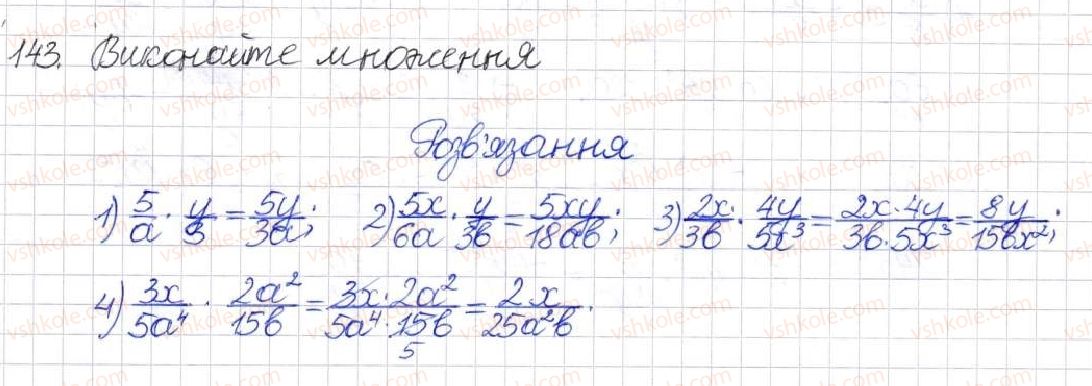 143. Виконайте множення
Розв'язання
1) 5/a · y/3 = 5y/3a; 2) 5x/6a · y/3b = 5xy/18ab; 3) 2x/3b · 4y/5x³ = 2x·4y/3b·5x³ = 8y/15bx²;
4) 3x/5a⁴ · 2a²/15b = 3x·2a²/5a⁴·15b = 2x/25a²b.
5